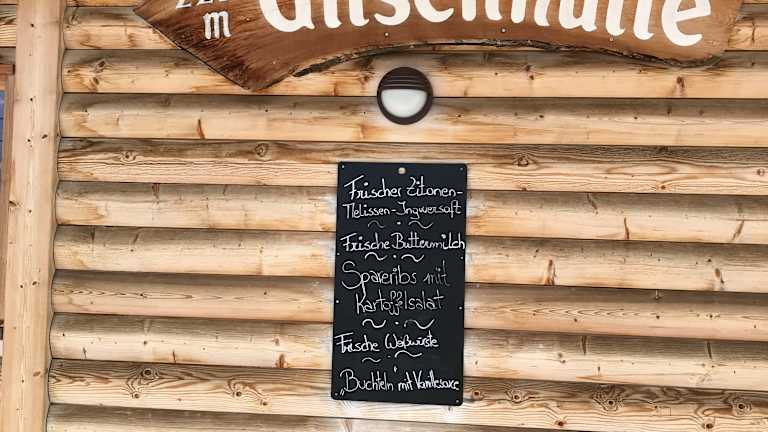 m
Frischer Zitonen-
Melissen-Ingwersaft
Frische Buttermilch
Spareribs mit
Kartoffelsalat
Frische Weßwürste
Buchteln mit Vanillesauce